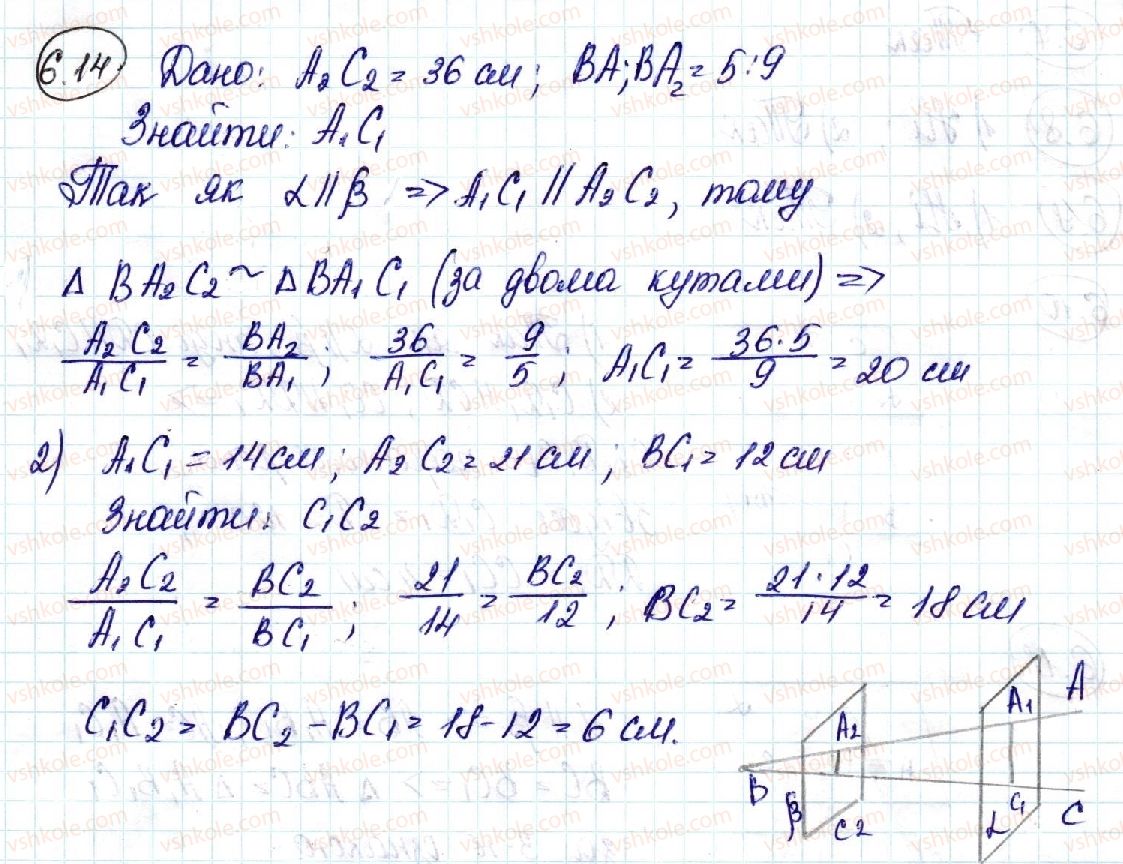 6.14 Дано: A₂C₂ = 36 см; BA:BA₂ = 5:9
Знайти: A₁C₁
Так як α||β => A₁C₁ || A₂C₂, тому
Δ BA₂C₂ ~ Δ BA₁C₁ (за двома кутами) =>
A₂C₂/A₁C₁ = BA₂/BA₁; 36/A₁C₁ = 9/5; A₁C₁ = 36·5/9 = 20 см
2) A₁C₁ = 14 см; A₂C₂ = 21 см; BC₁ = 12 см
Знайти: C₁C₂
A₂C₂/A₁C₁ = BC₂/BC₁; 21/14 = BC₂/12; BC₂ = 21·12/14 = 18 см
C₁C₂ = BC₂ - BC₁ = 18 - 12 = 6 см.
A₁ A
A₂
B
β C₂ α C₁ C
vshkole.com